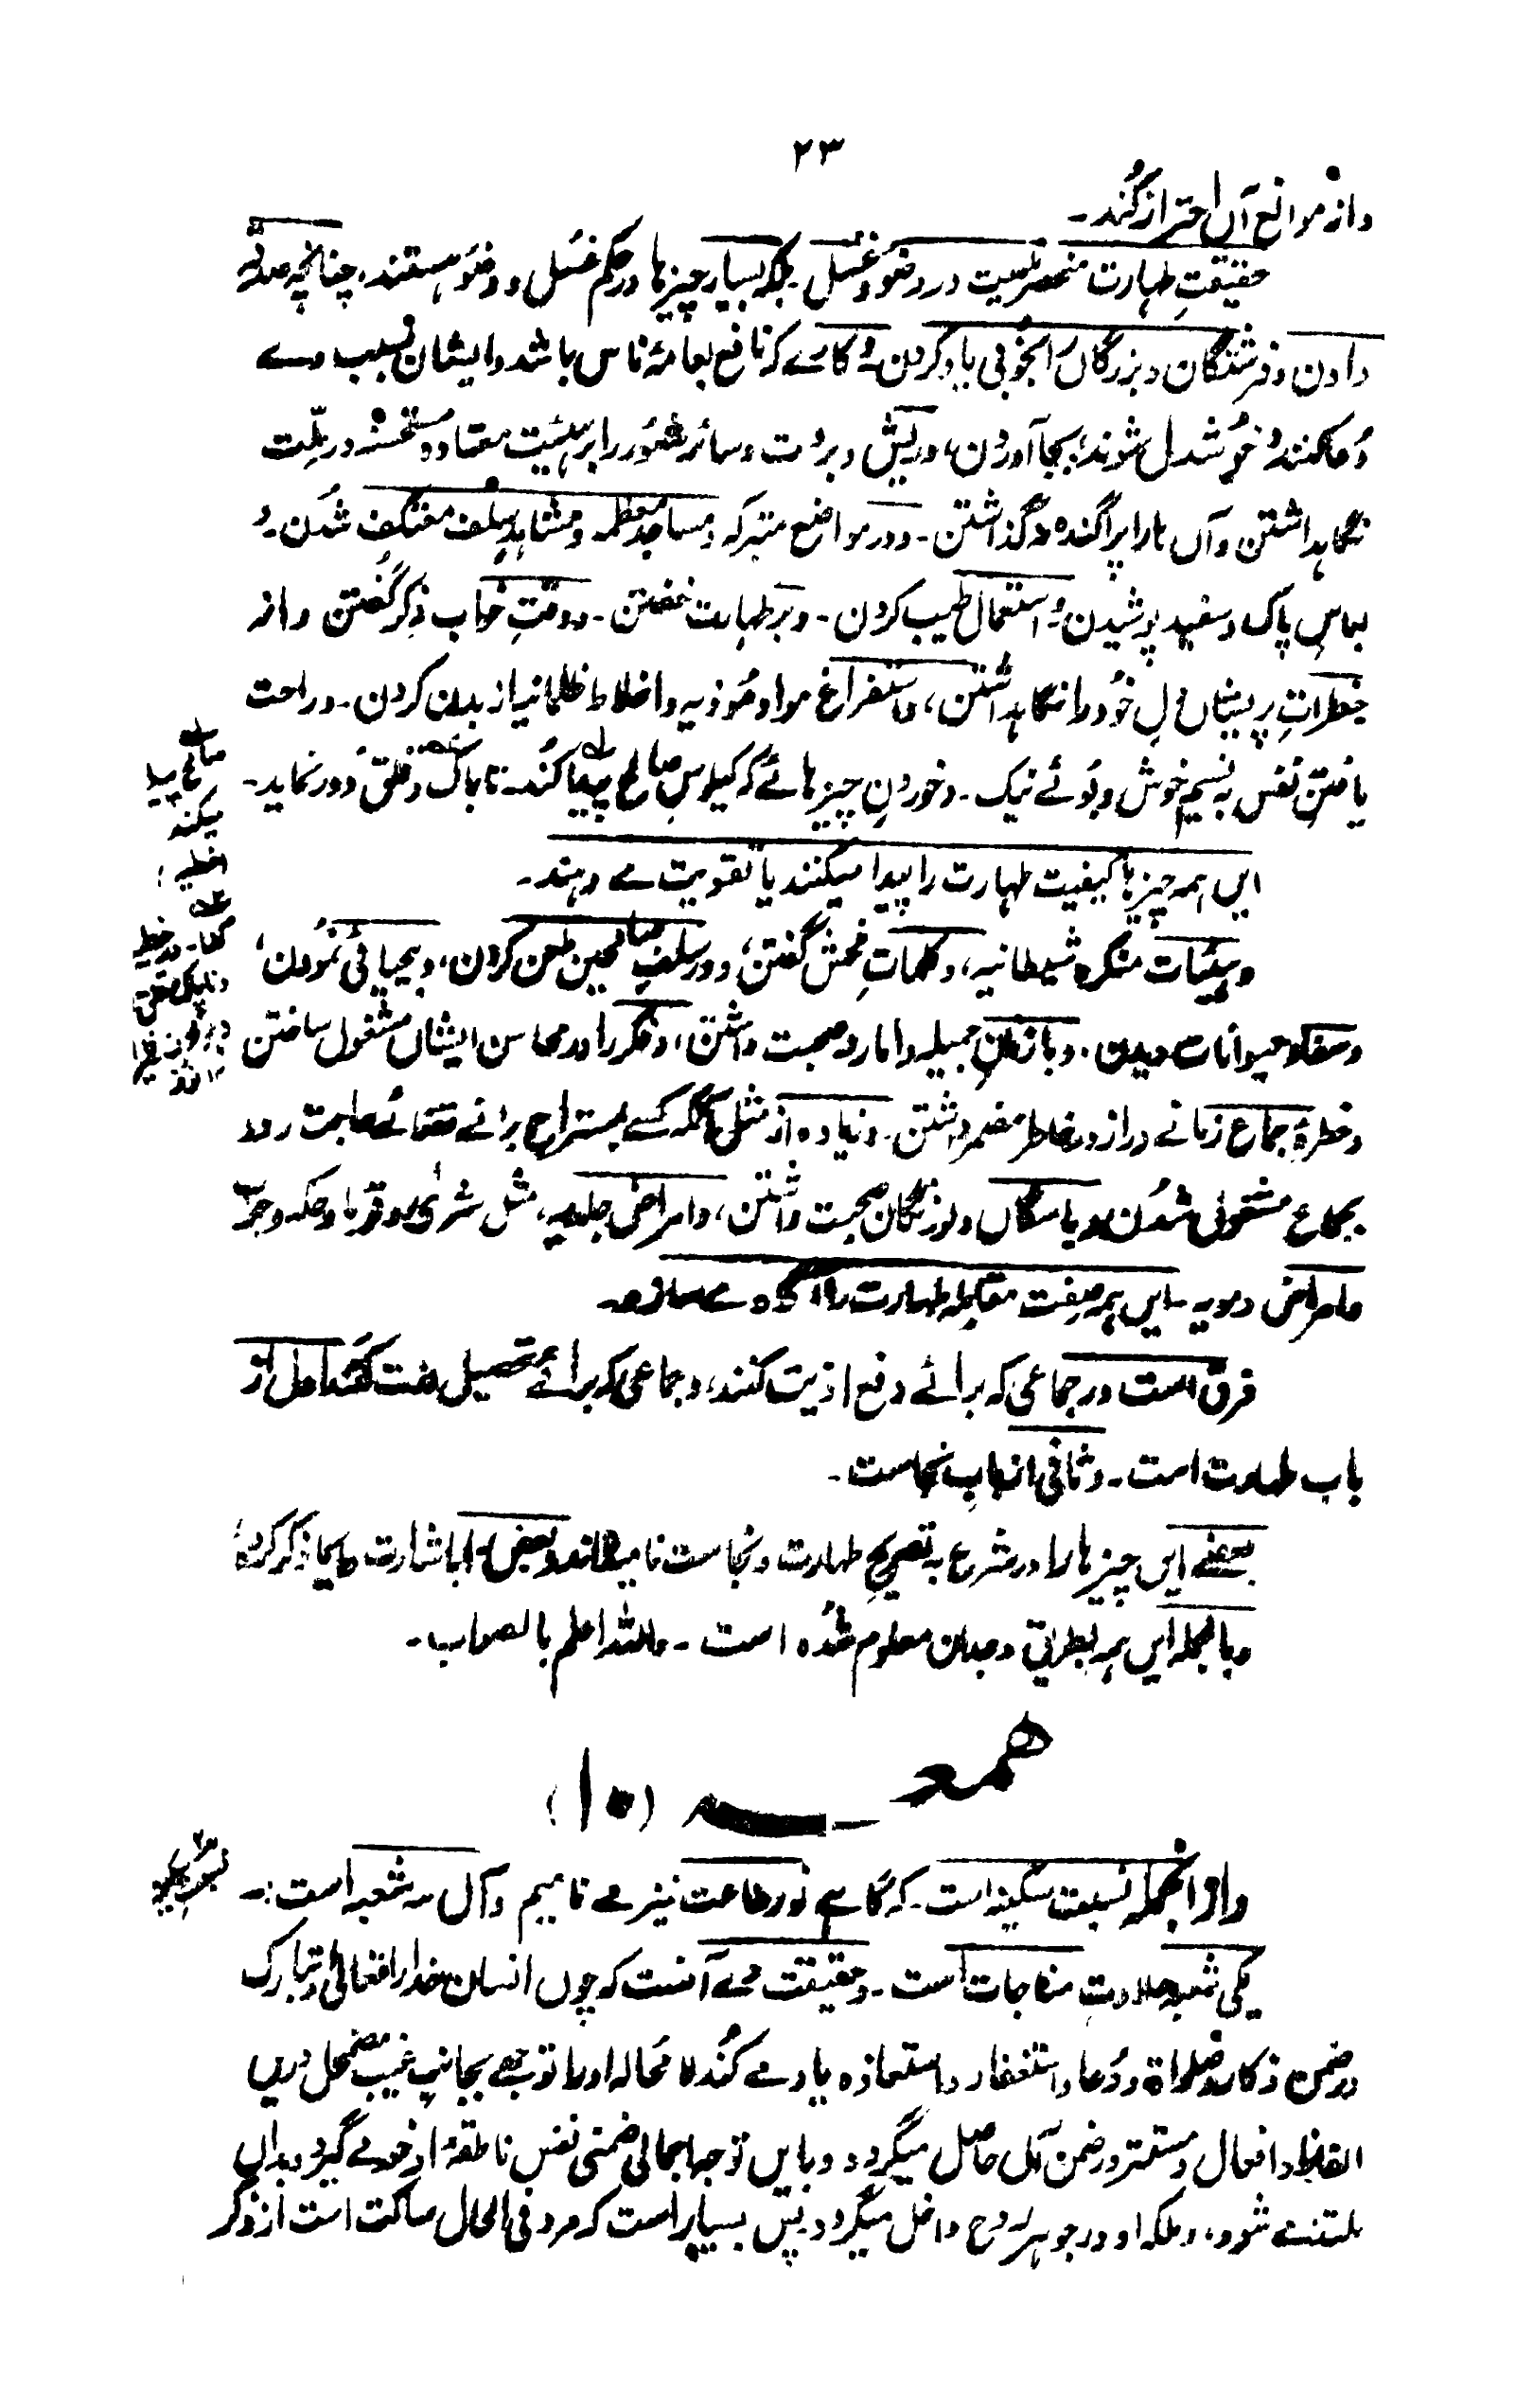 ۲۳
و از موانع آں احتراز کُند۔
حقیقتِ طہارت منحصر نیست در وضو و غُسل۔ بلکہ بسیار چیزہا در حکم غسُل و وضو ہستند، چنانچہ صدقہ
دادن و فرشتگان و بزرگاں را بخوبی یاد کردن و کارے کہ نافع بعامۂ ناس باشد و ایشان بسبب وے
دُعا کنند و خُوشدل شوند، بجا آوردن، و ریش و بروت و سائر شعُور را بر ہیئیت معتاد و مستحسنہ در ملّت
نگاہداشتن و آں ہا را پراگندہ نگذاشتن۔ و در مواضع متبرکہ و مساجد معظمہ و مشاہدِ سلف معتکف شُدن۔ و
لباسِ پاک و سفید پوشیدن و استعمال طیب کردن۔ و بر طہارت خفتن۔ و وقتِ خواب ذِکر گُفتن و از
خطراتِ پریشاں دلِ خُود را نگاہداشتن، و استفراغ مواد مُوذیہ و اخلاط ظلمانیہ از بدن کردن۔ و راحت
یافتنِ نفس بہ نسیم خوش و بُوئے نیک۔ و خوردنِ چیزہائے کہ کیلوسِ صالح پیدا کُند۔ تا باک و قلق دُور نماید۔
ایں ہمہ چیزہا کیفیت طہارت را پیدا میکنند یا تقویت مے دہند۔
و ہیئات منکرہ شیطانیہ، و کلماتِ فحش گفتن، و در سلفِ صالحین طعن کردن، و بیحیائی نمُودن،
و سفاد حیوانات دیدن۔ و با زنانِ جمیلہ و امارد صحبت داشتن، و فکر را در محاسن ایشاں مشغول ساختن
و خطرۂ جماع زمانے دراز در خاطر مضمر داشتن۔ و زیادہ از مثلِ آنکہ کسے بمستراح برائے قضائے حاجت رود
بجماع مشغول شُدن و با سگاں و بوزنگان صحبت داشتن، و امراض جلدیہ، مثل شری و قوبا و حکہ و جرب
و امراض دمویہ۔ ایں ہمہ صِفت مقابلہ طہارت را آگاہ مے سازد۔
فرق است در جماعی کہ برائے دفع اذیت کنند، و جماعی کہ برائے تحصیل لذت کُنند اول از
باب طہارت است۔ و ثانی از باب نجاست۔
بعضے ایں چیزہا را در شرع بہ تصریح طہارت و نجاست نامیدہ اند و بعض را باشارت و ایما ذکر کردہ
و بالجملہ ایں ہمہ بطریق وجدان معلوم شُدہ است۔ واللہ اعلم بالصواب۔
ھمعــــہ (۱۰)
و از انجملہ نسبت سکینہ است۔ کہ گاہے نور طاعت نیز مے نامیم و آں سہ شعبہ است:۔
یکی شعبہ حلاوتِ مناجات است۔ و حقیقت وے آنست کہ چوں انسان خدا را تعالیٰ و تبارک
در ضمن اذکار و صلواۃ و دُعا و استغفار و استعاذہ یاد مے کُند لا محالہ او را توجہے بجانب غیب مضمحل دریں
الفاظ و افعال و مستتر در ضمن آں حاصل میگردد و بایں توجہ اجمالی ضمنی نفس ناطقۂ او خوے گیرد و بداں
ملتذ مے شود، و ملکہ او در جوہر رُوح داخل میگردد پس بسیار است کہ مرد فی الحال ساکت است از ذکر